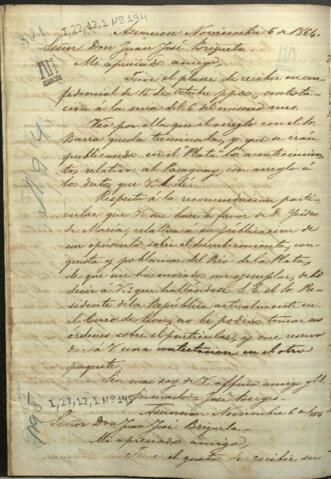 I,22,12,1 Nº 194
Asuncion Noviembre 6 de 1864.
Señor Don Juan José Brizuela.
Mi apreciado amigo,
Tuve el placer de recibir su confidencial de 15 de Octubre ppdo, contestacion á la mia del 6 del mismo mes.
Veo por ella que el arreglo con el Sr. Barra queda terminado, y que se iran publicando en el Plata los acontecimientos relativos al Paraguay, con arreglo á los datos que V. le dé.
Respecto á la recomendacion particular que V. me hace á favor de D. Isidro de Maria, relativa á su publicacion de un opusculo sobre el descubrimiento, conquista y poblacion del Rio de la Plata, de que me ha enviado un ejemplar, debo decir á V. que hallandose S. E. el Sr. Presidente de la República actualmente en Cerro de Leon, no he podido tomar sus órdenes sobre el particular, y me reservo dar á V. una contestacion en el otro paquete.
Sin mas soy de V. affmo. amigo
firmado José Berges
I,22,12,1 Nº 195
Asuncion Noviembre 6 de 1864
Señor Don Juan José Brizuela.
Mi apreciado amigo,
Tuve el gusto de recibir su